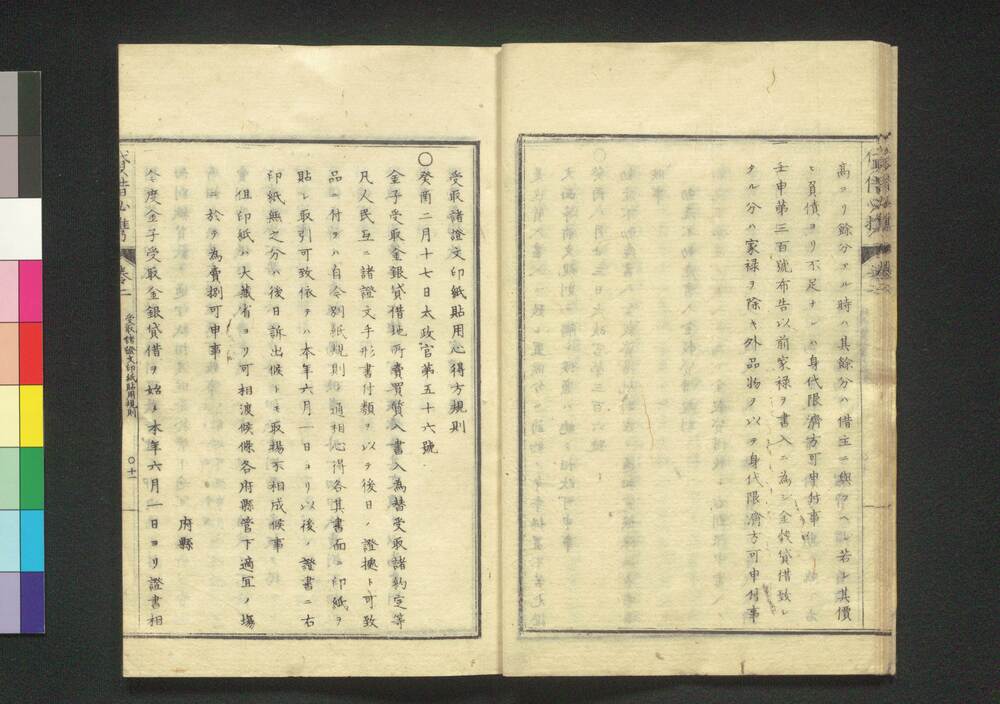 高ヨリ餘分アル時ハ其餘分ハ借主ニ與フヘシ若シ其價
ヒ負債ヨリ不足ナレハ身代限濟方可申付事
壬申第三百號布告以前家禄ヲ書入ニ為シ金銭貸借致シ
タル分ハ家禄ヲ除キ外品物ヲ以テ身代限濟方可申付事
受取諸證文印紙貼用心得方規則
○癸酉二月十七日太政官第五十六號
金子受取金銀貸借地所賣買質入書入為替受取諸約定等
凡人民互ニ諸證文手形書付類ヲ以テ後日ノ證據ト可致
品ニ付テハ自今別紙規則ノ通相心得各其書面ニ印紙ヲ
貼シ取引可致依テハ本年六月一日ヨリ以後ノ證書ニ右
印紙無之分ハ後日訴出候トモ取揚不相成候事
但印紙ハ大藏省ヨリ可相渡候條各府縣管下適宜ノ場
所ニ於テ為賣捌可申事
府縣
今度金子受取金銀貸借ヲ始メ本年六月一日ヨリ證書相
卷二
受取諸證文印紙貼用規則
○十一